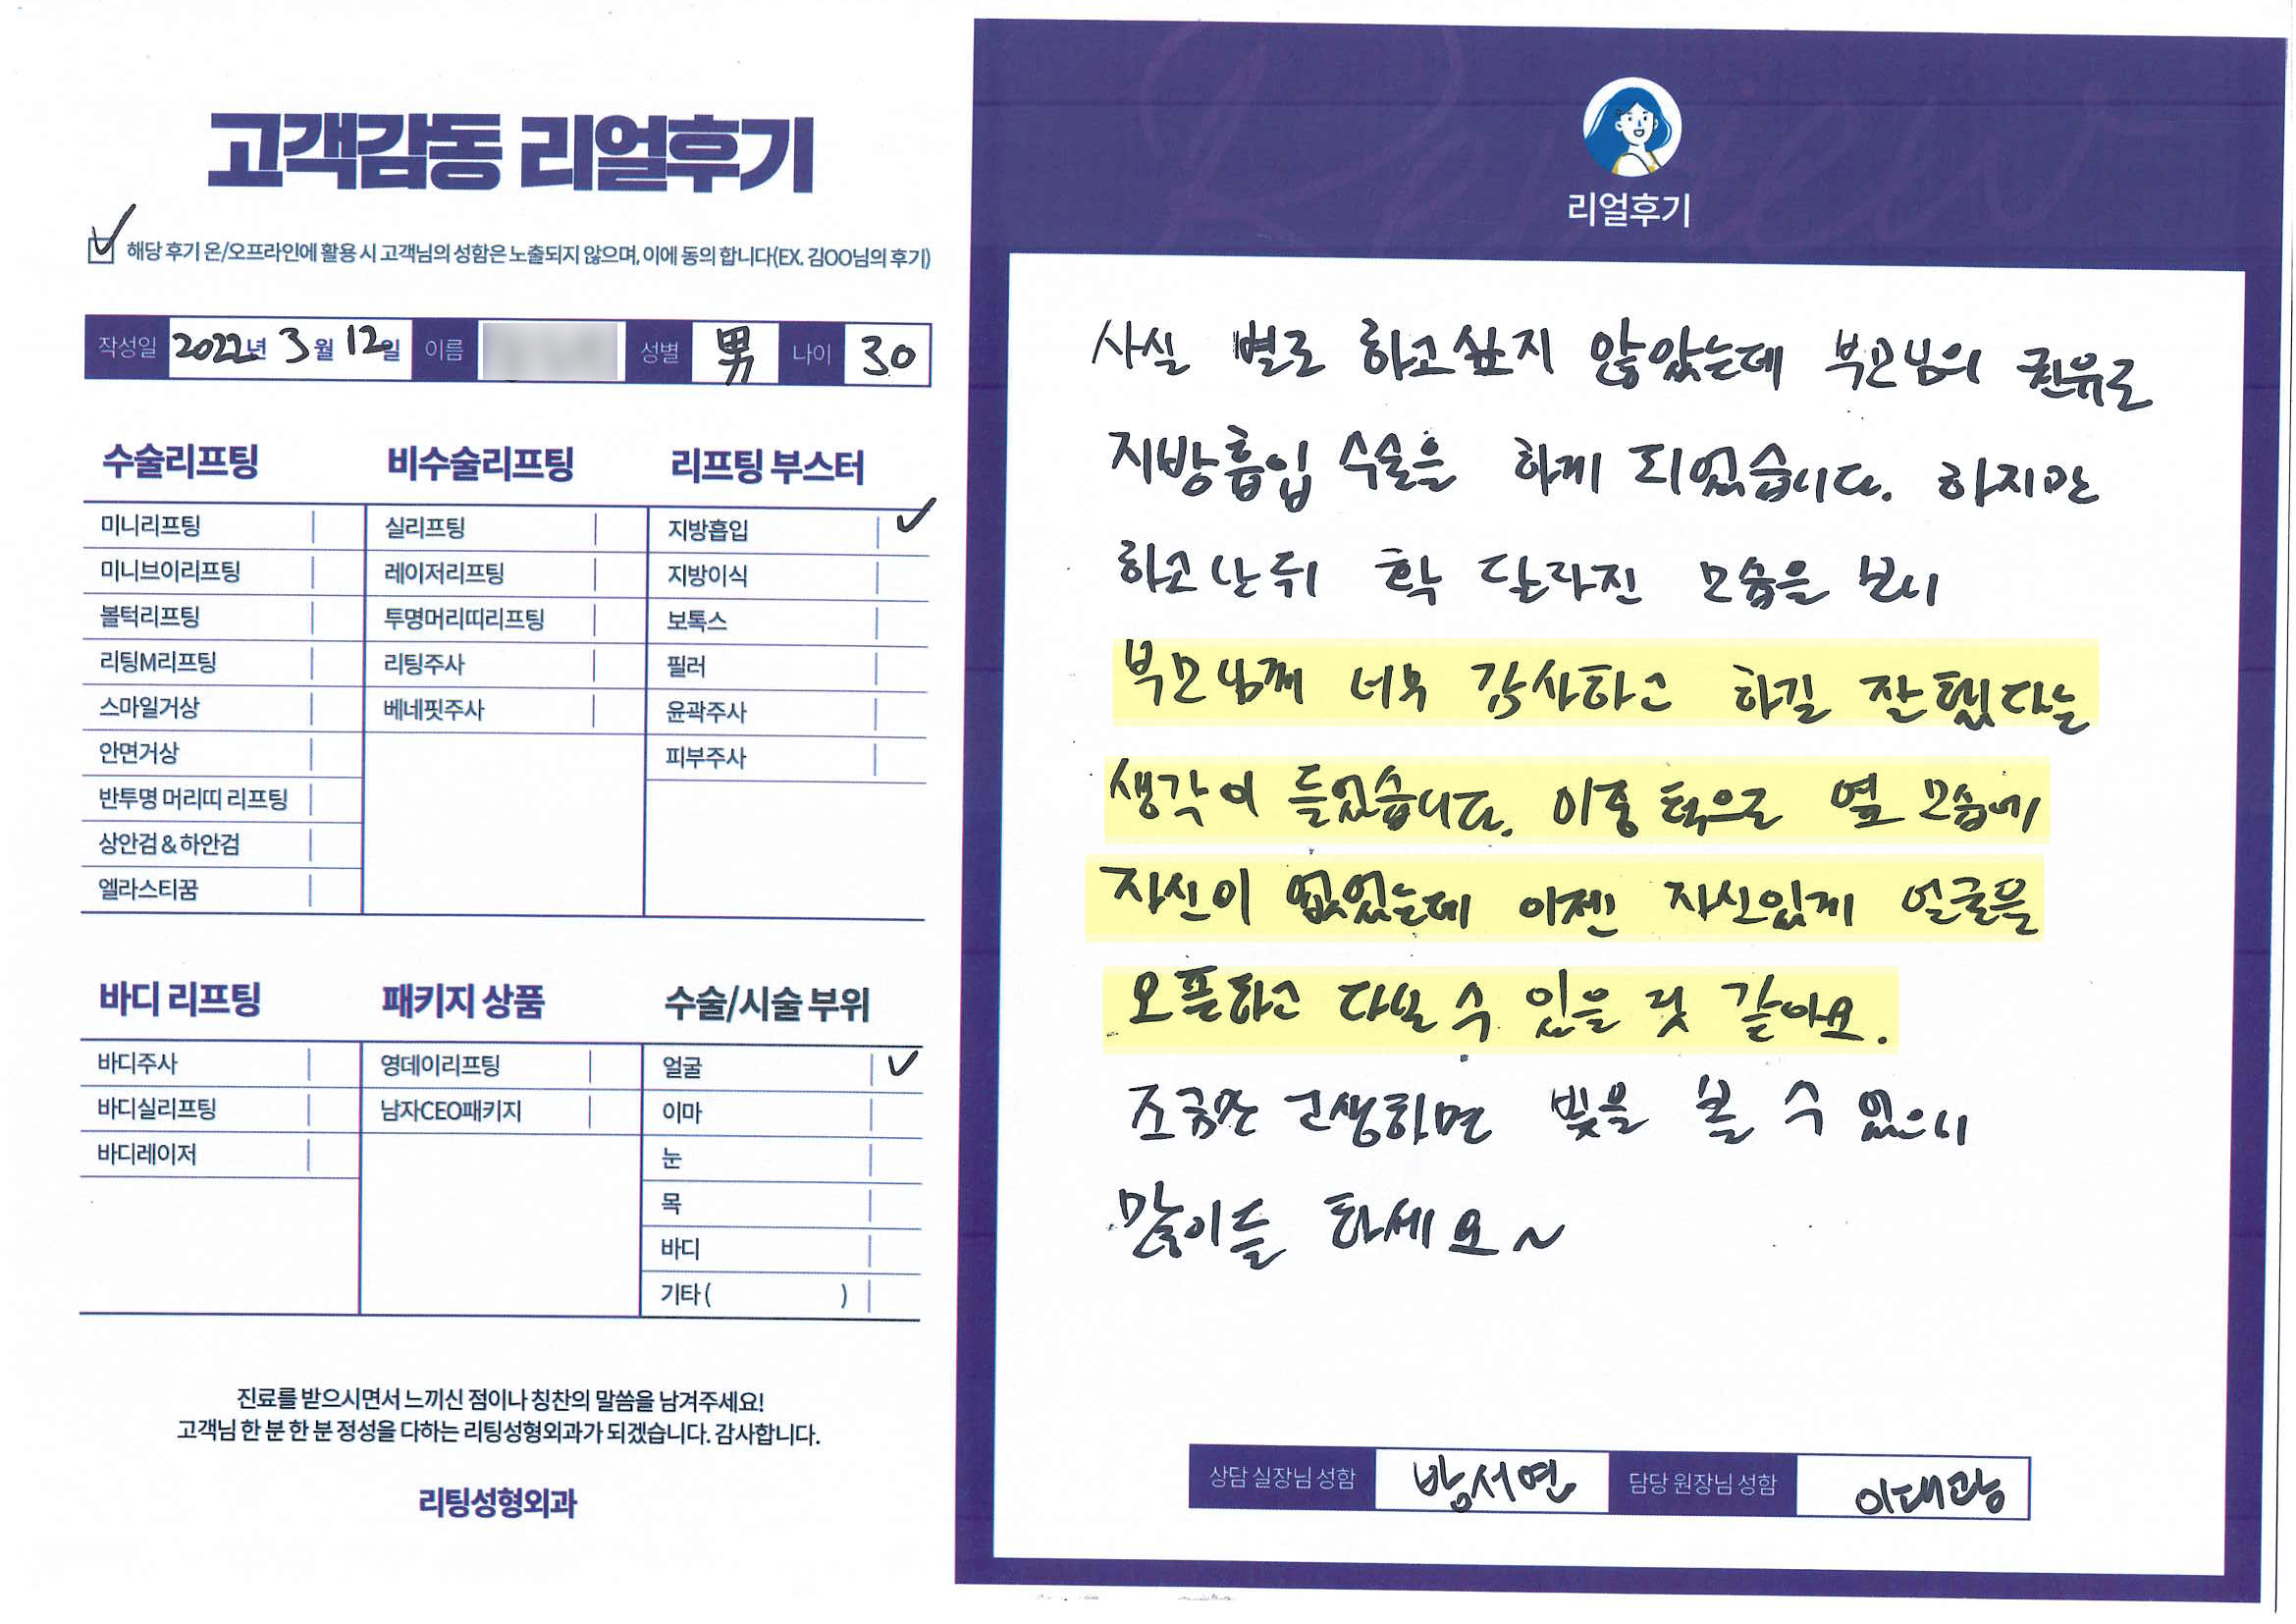 고객감동 리얼후기
해당 후기 온/오프라인에 활용 시 고객님의 성함은 노출되지 않으며, 이에 동의 합니다(EX. 김OO님의 후기)
작성일 2022년 3월 12일 이름 성별 男 나이 30
수술리프팅
미니리프팅
미니브이리프팅
볼턱리프팅
리팅M리프팅
스마일거상
안면거상
반투명 머리띠 리프팅
상안검 & 하안검
엘라스티꿈
비수술리프팅
실리프팅
레이저리프팅
투명머리띠리프팅
리팅주사
베네핏주사
리프팅 부스터
지방흡입
지방이식
보톡스
필러
윤곽주사
피부주사
바디 리프팅
바디주사
바디실리프팅
바디레이저
패키지 상품
영데이리프팅
남자CEO패키지
수술/시술 부위
얼굴
이마
눈
목
바디
기타 ( )
진료를 받으시면서 느끼신 점이나 칭찬의 말씀을 남겨주세요!
고객님 한 분 한 분 정성을 다하는 리팅성형외과가 되겠습니다. 감사합니다.
리팅성형외과
Review
리얼후기
사실 별로 하고싶지 않았는데 부모님의 권유로
지방흡입 수술을 하게 되었습니다. 하지만
하고난뒤 확 달라진 모습을 보니
부모님께 너무 감사하고 하길 잘했다는
생각이 들었습니다. 이중 턱으로 옆 모습에
자신이 없었는데 이젠 자신있게 얼굴을
오픈하고 다닐 수 있을 것 같아요.
조금만 고생하면 빛을 볼 수 있으니
많이들 하세요~
상담 실장님 성함 박서연 담당 원장님 성함 이대광